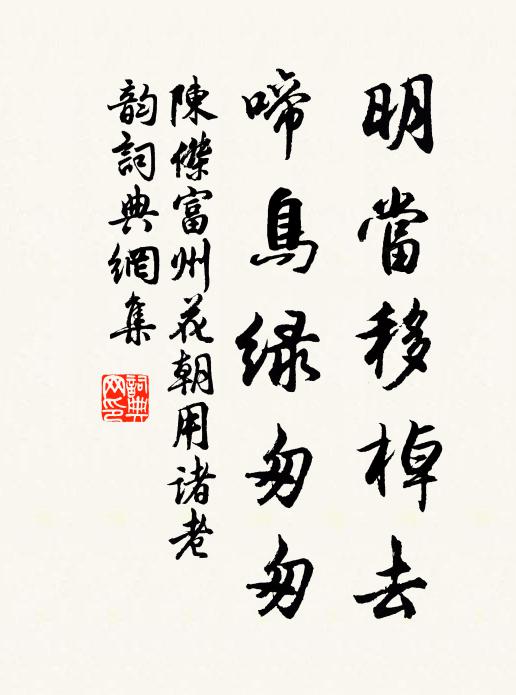 明當移棹去
啼鳥緑匆匆
陳傑富州花朝用诸老
韵詞典網集
詞典网印